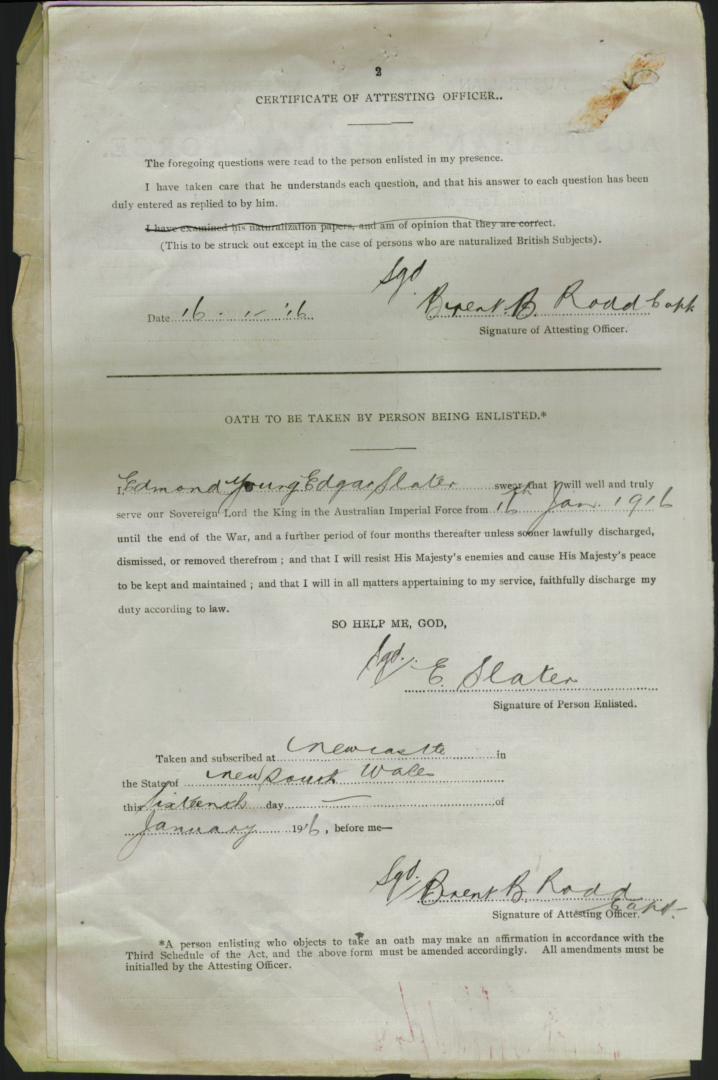 2
CERTIFICATE OF ATTESTING OFFICER..
The foregoing questions were read to the person enlisted in my presence.
I have taken care that he understands each question, and that his answer to each question has been
duly entered as replied to by him.
I have examined his naturalization papers, and am of opinion that they are correct.
(This to be struck out except in the case of persons who are naturalized British Subjects).
Sgd
Date 16 . 1 - '16 Brent. B. Rodd Capt
Signature of Attesting Officer.
OATH TO BE TAKEN BY PERSON BEING ENLISTED.*
I, Edmond Young Edgar Slater swear that I will well and truly
serve our Sovereign Lord the King in the Australian Imperial Force from 16th Jan. 1916
until the end of the War, and a further period of four months thereafter unless sooner lawfully discharged,
dismissed, or removed therefrom ; and that I will resist His Majesty's enemies and cause His Majesty's peace
to be kept and maintained ; and that I will in all matters appertaining to my service, faithfully discharge my
duty according to law.
SO HELP ME, GOD,
Sgd. E. Slater
Signature of Person Enlisted.
Taken and subscribed at Newcastle in
the State of New South Wales
this Sixteenth day — of
January 1916, before me—
Sgd. Brent B. Rodd
Capt.
Signature of Attesting Officer.
*A person enlisting who objects to take an oath may make an affirmation in accordance with the
Third Schedule of the Act, and the above form must be amended accordingly. All amendments must be
initialled by the Attesting Officer.